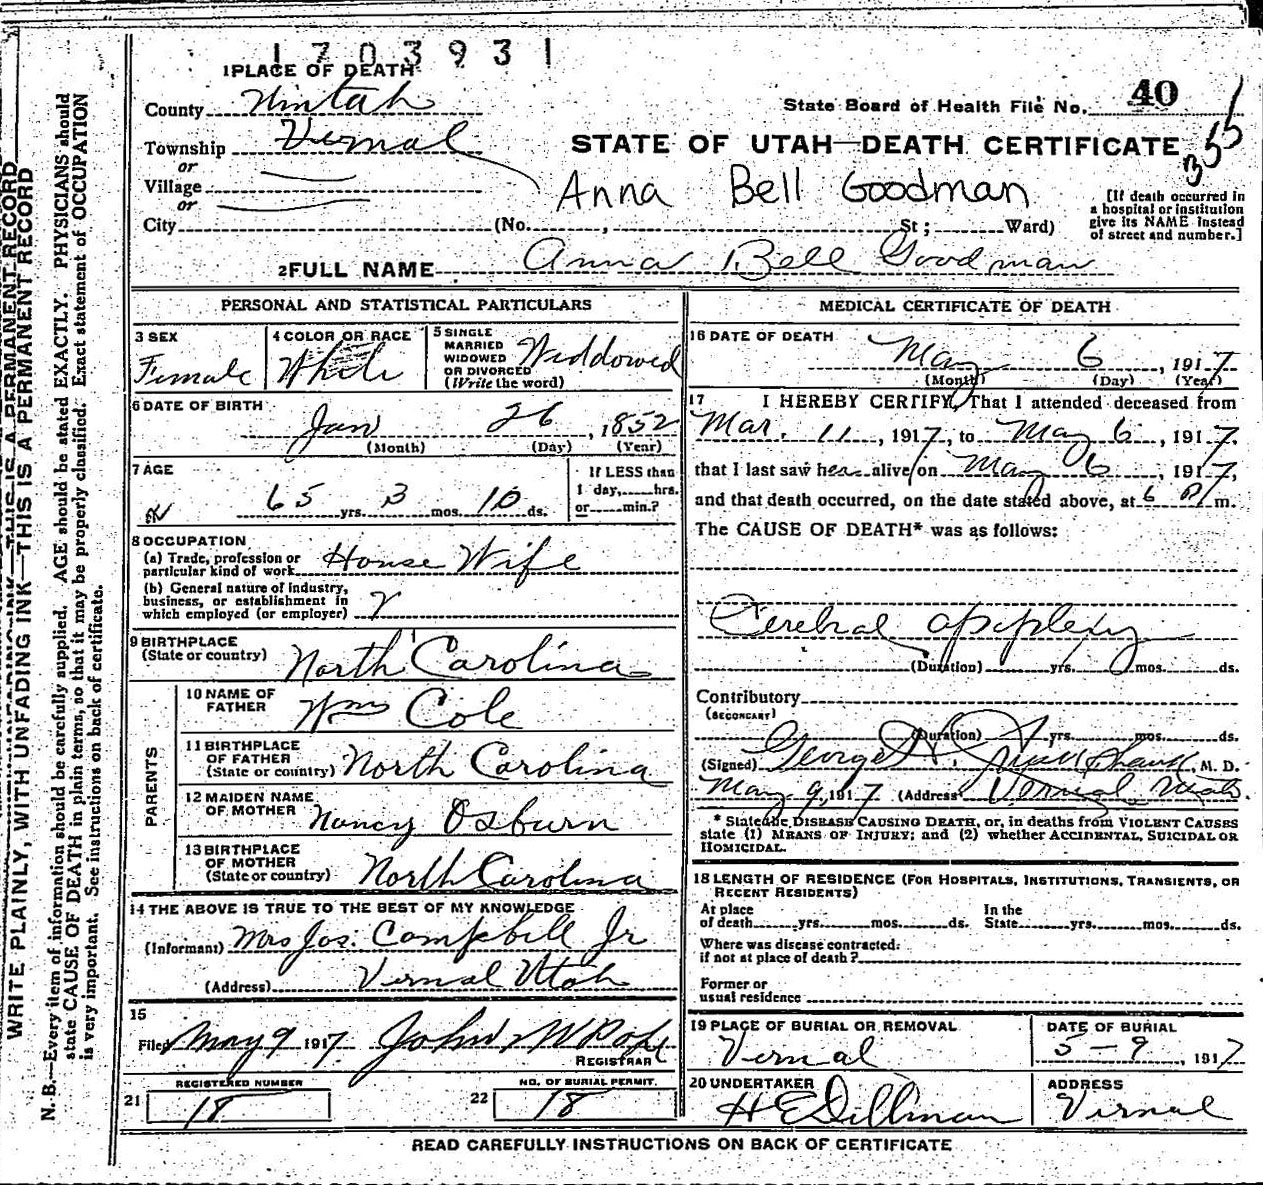 1703931
1 PLACE OF DEATH
County Uintah
State Board of Health File No. 40
Township Vernal
STATE OF UTAH—DEATH CERTIFICATE
355
or
Village
or
Anna Bell Goodman
[If death occurred in
a hospital or institution
give its NAME instead
of street and number.]
City (No. , St ; Ward)
2 FULL NAME Anna Bell Goodman
PERSONAL AND STATISTICAL PARTICULARS
3 SEX
Female
4 COLOR OR RACE
White
5 SINGLE
MARRIED
WIDOWED
OR DIVORCED
(Write the word)
Widdowed
6 DATE OF BIRTH
Jan 26, 1852
(Month) (Day) (Year)
7 AGE
65 yrs. 3 mos. 10 ds.
If LESS than
1 day, hrs.
or min.?
8 OCCUPATION
(a) Trade, profession or
particular kind of work House Wife
(b) General nature of industry,
business, or establishment in
which employed (or employer)
9 BIRTHPLACE
(State or country) North Carolina
PARENTS
10 NAME OF
FATHER Wm Cole
11 BIRTHPLACE
OF FATHER
(State or country) North Carolina
12 MAIDEN NAME
OF MOTHER Nancy Osburn
13 BIRTHPLACE
OF MOTHER
(State or country) North Carolina
14 THE ABOVE IS TRUE TO THE BEST OF MY KNOWLEDGE
(Informant) Mrs Jos. Campbell Jr
(Address) Vernal Utah
15
Filed May 9 1917 John W Pope
REGISTRAR
REGISTERED NUMBER
21 18
NO. OF BURIAL PERMIT.
22 18
MEDICAL CERTIFICATE OF DEATH
16 DATE OF DEATH
May 6, 1917
(Month) (Day) (Year)
17 I HEREBY CERTIFY, That I attended deceased from
Mar. 11, 1917, to May 6, 1917,
that I last saw her alive on May 6, 1917,
and that death occurred, on the date stated above, at 6 P m.
The CAUSE OF DEATH* was as follows:
Cerebral apoplexy
(Duration) yrs. mos. ds.
Contributory
(SECONDARY)
(Duration) yrs. mos. ds.
(Signed) George H. , M. D.
May 9, 1917 (Address Vernal Utah.
* State the DISEASE CAUSING DEATH, or, in deaths from VIOLENT CAUSES
state (1) MEANS OF INJURY; and (2) whether ACCIDENTAL, SUICIDAL OR
HOMICIDAL.
18 LENGTH OF RESIDENCE (FOR HOSPITALS, INSTITUTIONS, TRANSIENTS, OR
RECENT RESIDENTS)
At place
of death yrs. mos. ds.
In the
State yrs. mos. ds.
Where was disease contracted.
if not at place of death?
Former or
usual residence
19 PLACE OF BURIAL OR REMOVAL
Vernal
DATE OF BURIAL
5-9, 1917
20 UNDERTAKER
H E Dillman
ADDRESS
Vernal
READ CAREFULLY INSTRUCTIONS ON BACK OF CERTIFICATE
WRITE PLAINLY, WITH UNFADING INK—THIS IS A PERMANENT RECORD
N. B.—Every item of information should be carefully supplied. AGE should be stated EXACTLY. PHYSICIANS should
state CAUSE OF DEATH in plain terms, so that it may be properly classified. Exact statement of OCCUPATION
is very important. See instructions on back of certificate.